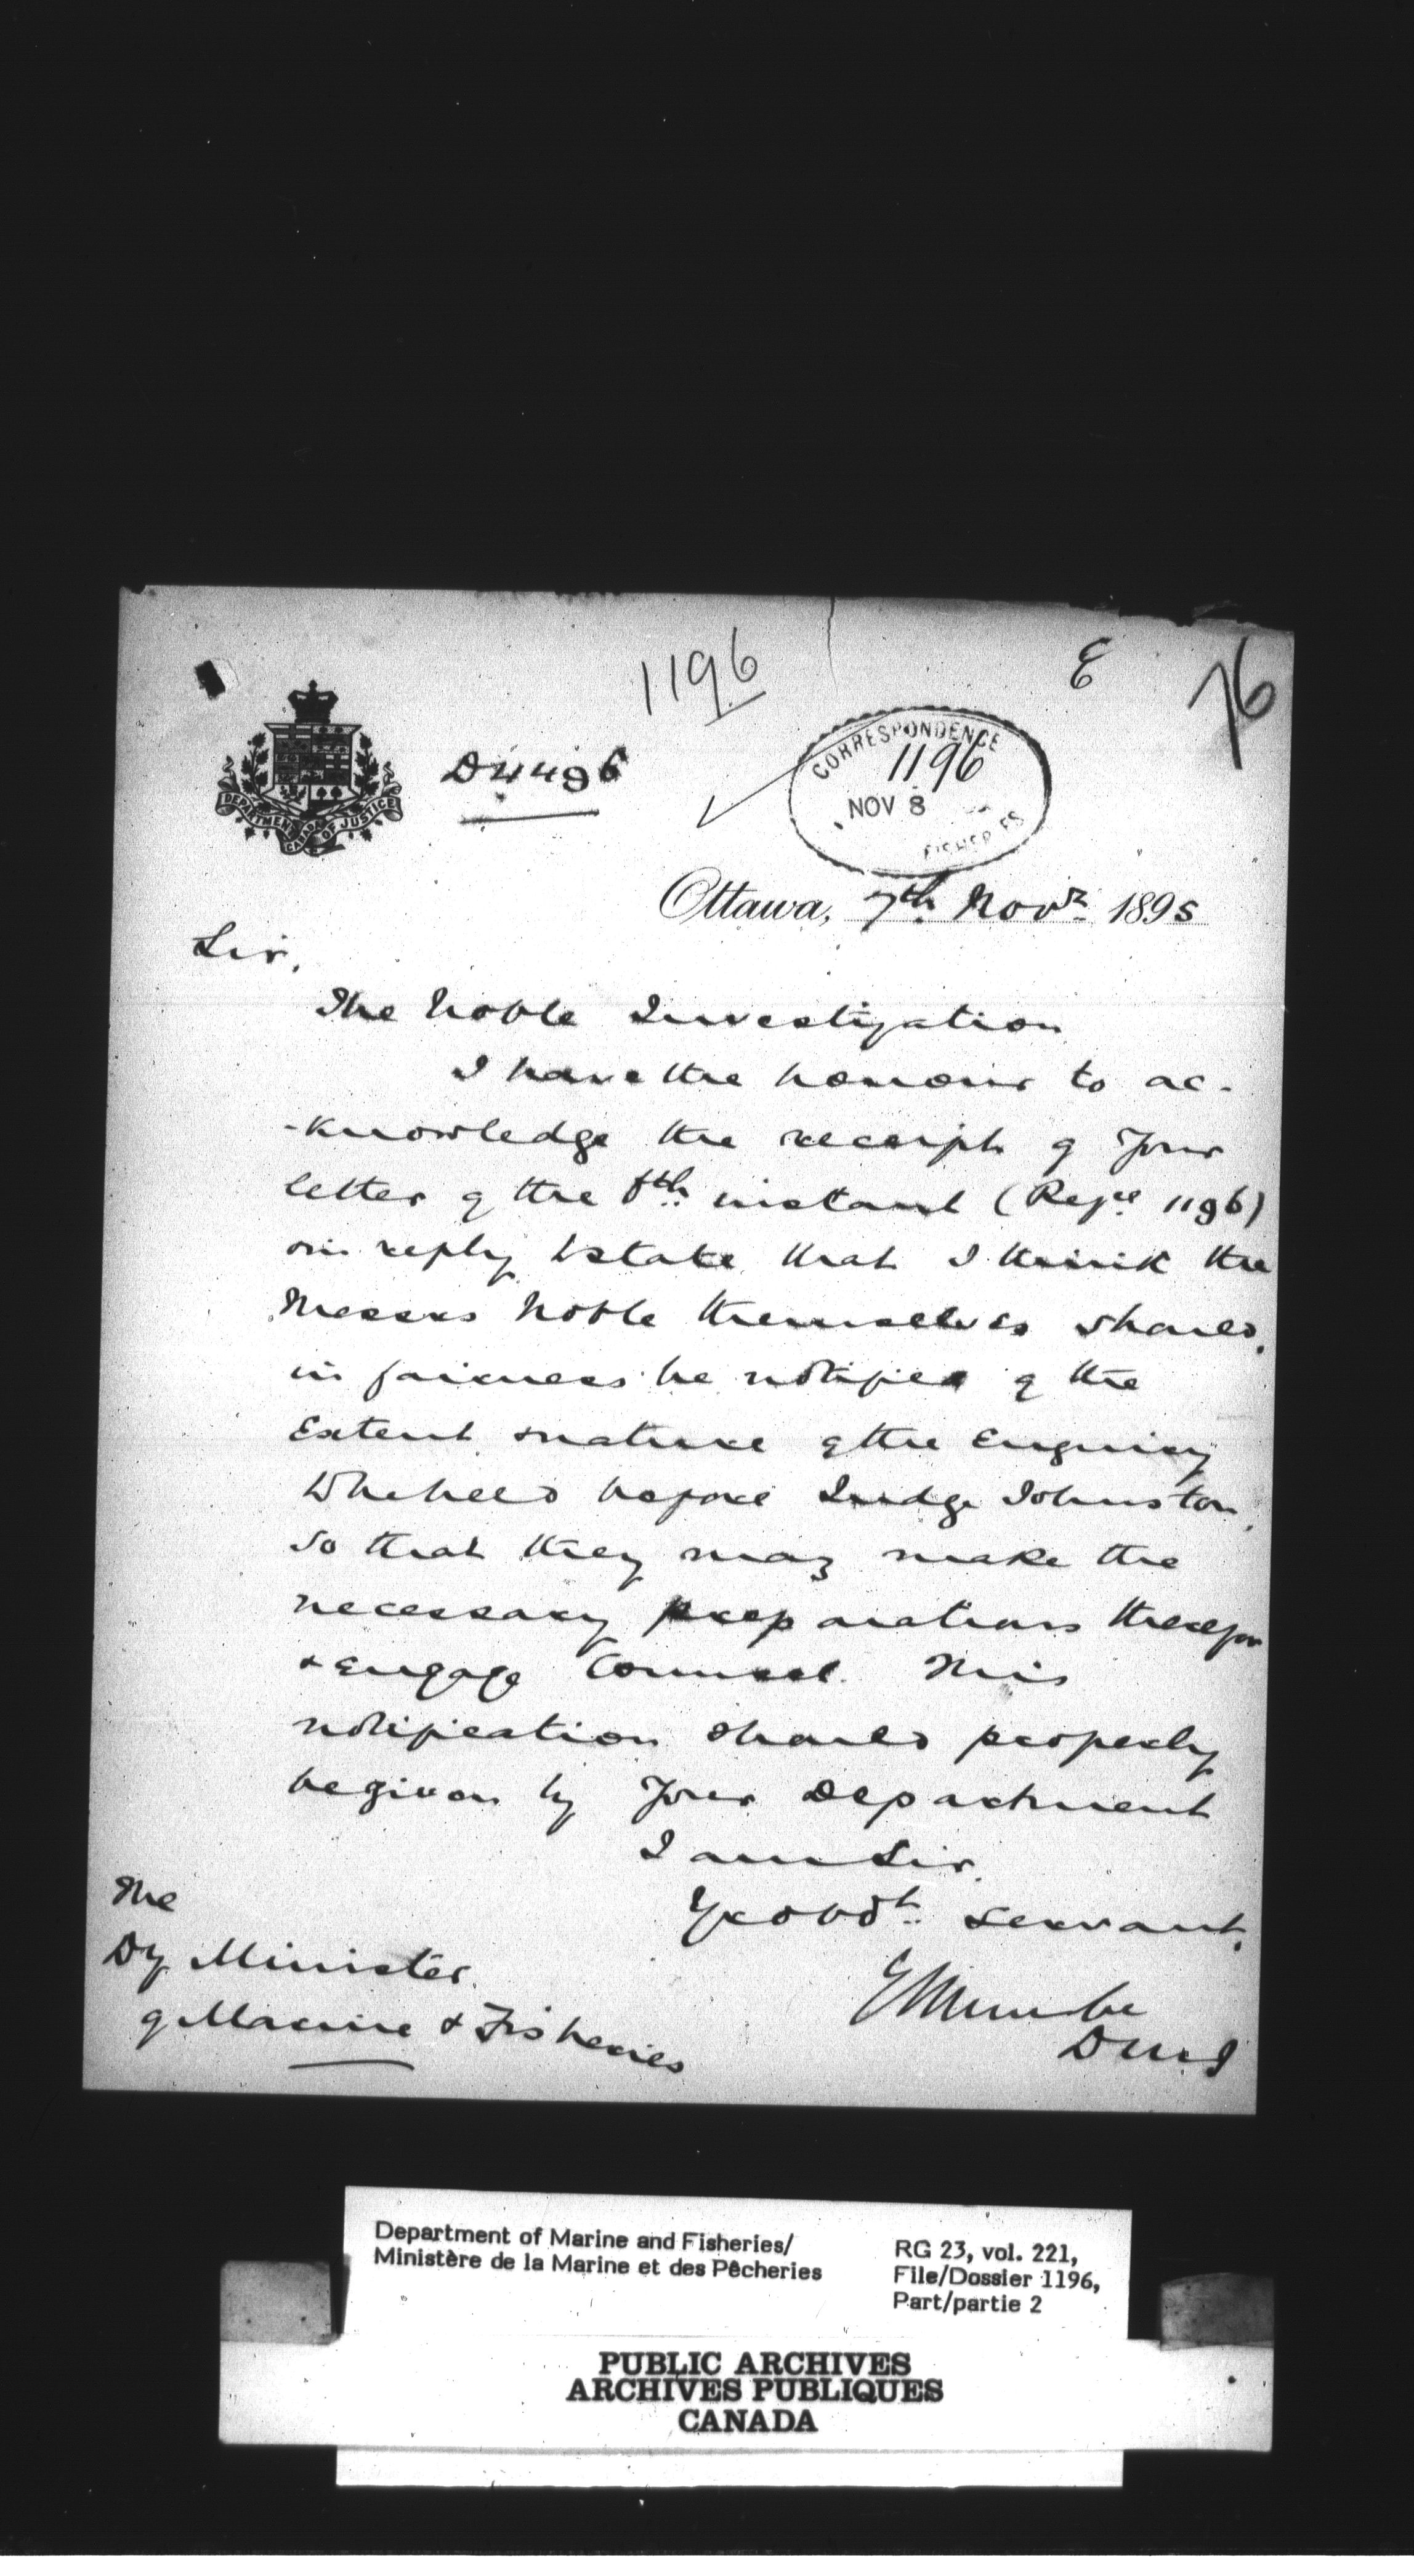 1196
E
76
DEPARTMENT OF JUSTICE
CANADA
D4496
CORRESPONDENCE
1196
NOV 8
FISHERIES
Ottawa, 7th Novr 1895
Sir,
The Noble Investigation
I have the honour to ac-
-knowledge the receipt of your
letter of the instant (Refce 1196)
in reply to state that I think the
Messrs Noble themselves should,
in fairness be notified of the
Extent & nature of the Enquiry
to be held before Judge Johnston,
so that they may make the
necessary preparations therefor
& engage Counsel. This
notification should properly
be given by your Department
I am Sir,
Yr obdt servant,
D M J
The
Dy Minister
of Marine & Fisheries
Department of Marine and Fisheries/
Ministère de la Marine et des Pêcheries
RG 23, vol. 221,
File/Dossier 1196,
Part/partie 2
PUBLIC ARCHIVES
ARCHIVES PUBLIQUES
CANADA